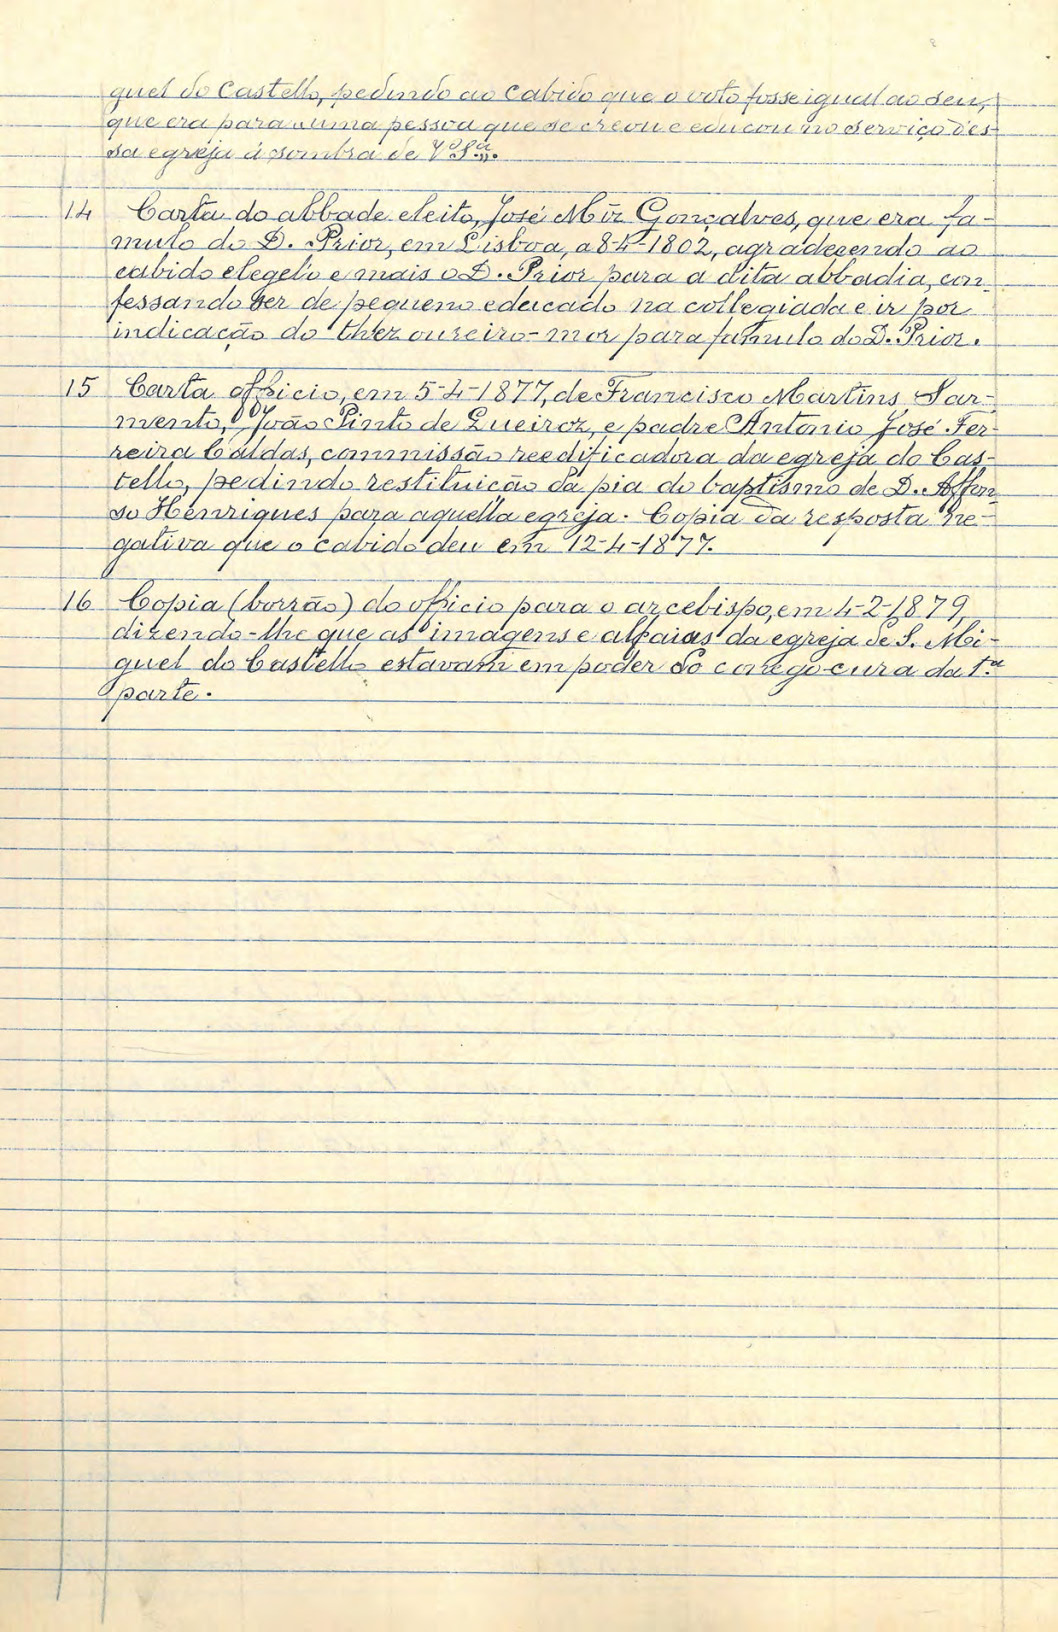 guel do Castello, pedindo ao cabido que o voto fosse igual ao seu,
que era para uma pessoa que se creou e educou no serviço des-
sa egreja á sombra de V.ª S.ª".
14 Carta do abbade eleito, José Miz Gonçalves, que era fa-
mulo do D. Prior, em Lisboa, a 8-4-1802, agradecendo ao
cabido elegelo e mais o D. Prior para a dita abbadia, con-
fessando ser de pequeno educado na collegiada e ir por
indicação do thezoureiro-mor para famulo do D. Prior.
15 Carta officio, em 5-4-1877, de Francisco Martins Sar-
mento, João Pinto de Queiroz, e padre Antonio José Fer-
reira Caldas, commissão reedificadora da egreja do Cas-
tello, pedindo restituição da pia do baptismo de D. Affon-
so Henriques para aquella egreja. Copia da resposta ne-
gativa que o cabido deu em 12-4-1877.
16 Copia (borrão) do officio para o arcebispo, em 4-2-1879,
dizendo-lhe que as imagens e alfaias da egreja de S. Mi-
guel do Castello estavam em poder do conego cura da 1.ª
parte.